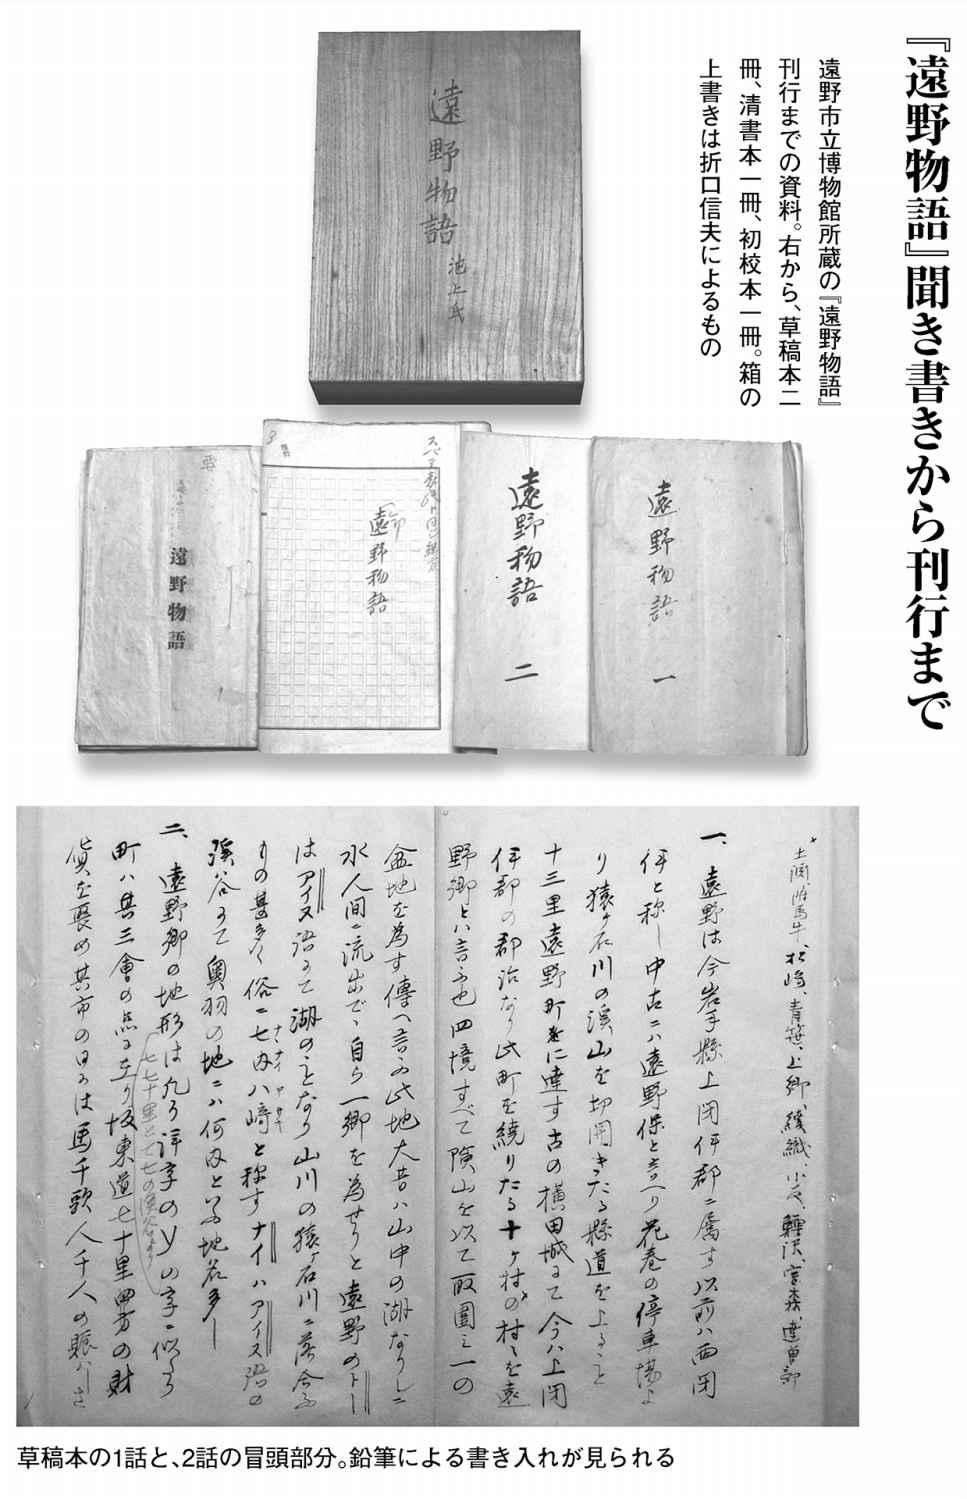 『遠野物語』聞き書きから刊行まで
遠野市立博物館所蔵の『遠野物語』
刊行までの資料。右から、草稿本二
冊、清書本一冊、初校本一冊。箱の
上書きは折口信夫によるもの
遠野物語
池上氏
遠野物語 一
遠野物語 二
遠野物語
遠野物語
土淵 附馬牛、松崎、青笹、上郷、綾織、小友、鱒沢、宮森、達曽部
一、遠野は今岩手縣上閉伊郡ニ属す以前ハ西閉
伊と称し中古ニハ遠野保と言へり花巻の停車場よ
り猿ヶ石川の渓山を切開きたる縣道を上ること
十三里遠野町に達す古の横田城にて今ハ上閉
伊郡の郡治なり此町を繞りたる十ヶ村の村々を遠
野郷とハ言ふ也四境すべて険山を以て取圍ミ一の
盆地を為す傳へ言ふ此地大昔ハ山中の湖なりしニ
水人間ニ流出で、自ら一郷を為せりと遠野のトー
はアイヌ語にて湖のことなり山川の猿ヶ石川ニ落合ふ
もの甚多く俗ニ七内八崎と称すナイハアイヌ語の
渓谷にて奥羽の地ニハ何内と云ふ地名多し
二、遠野郷の地形は九分詳字のyの字ニ似たり
町ハ其三會の点に在り坂東道七十里四方の財
貨を聚め其市の日には馬千歌人千人の賑ハしさ
草稿本の1話と、2話の冒頭部分。鉛筆による書き入れが見られる